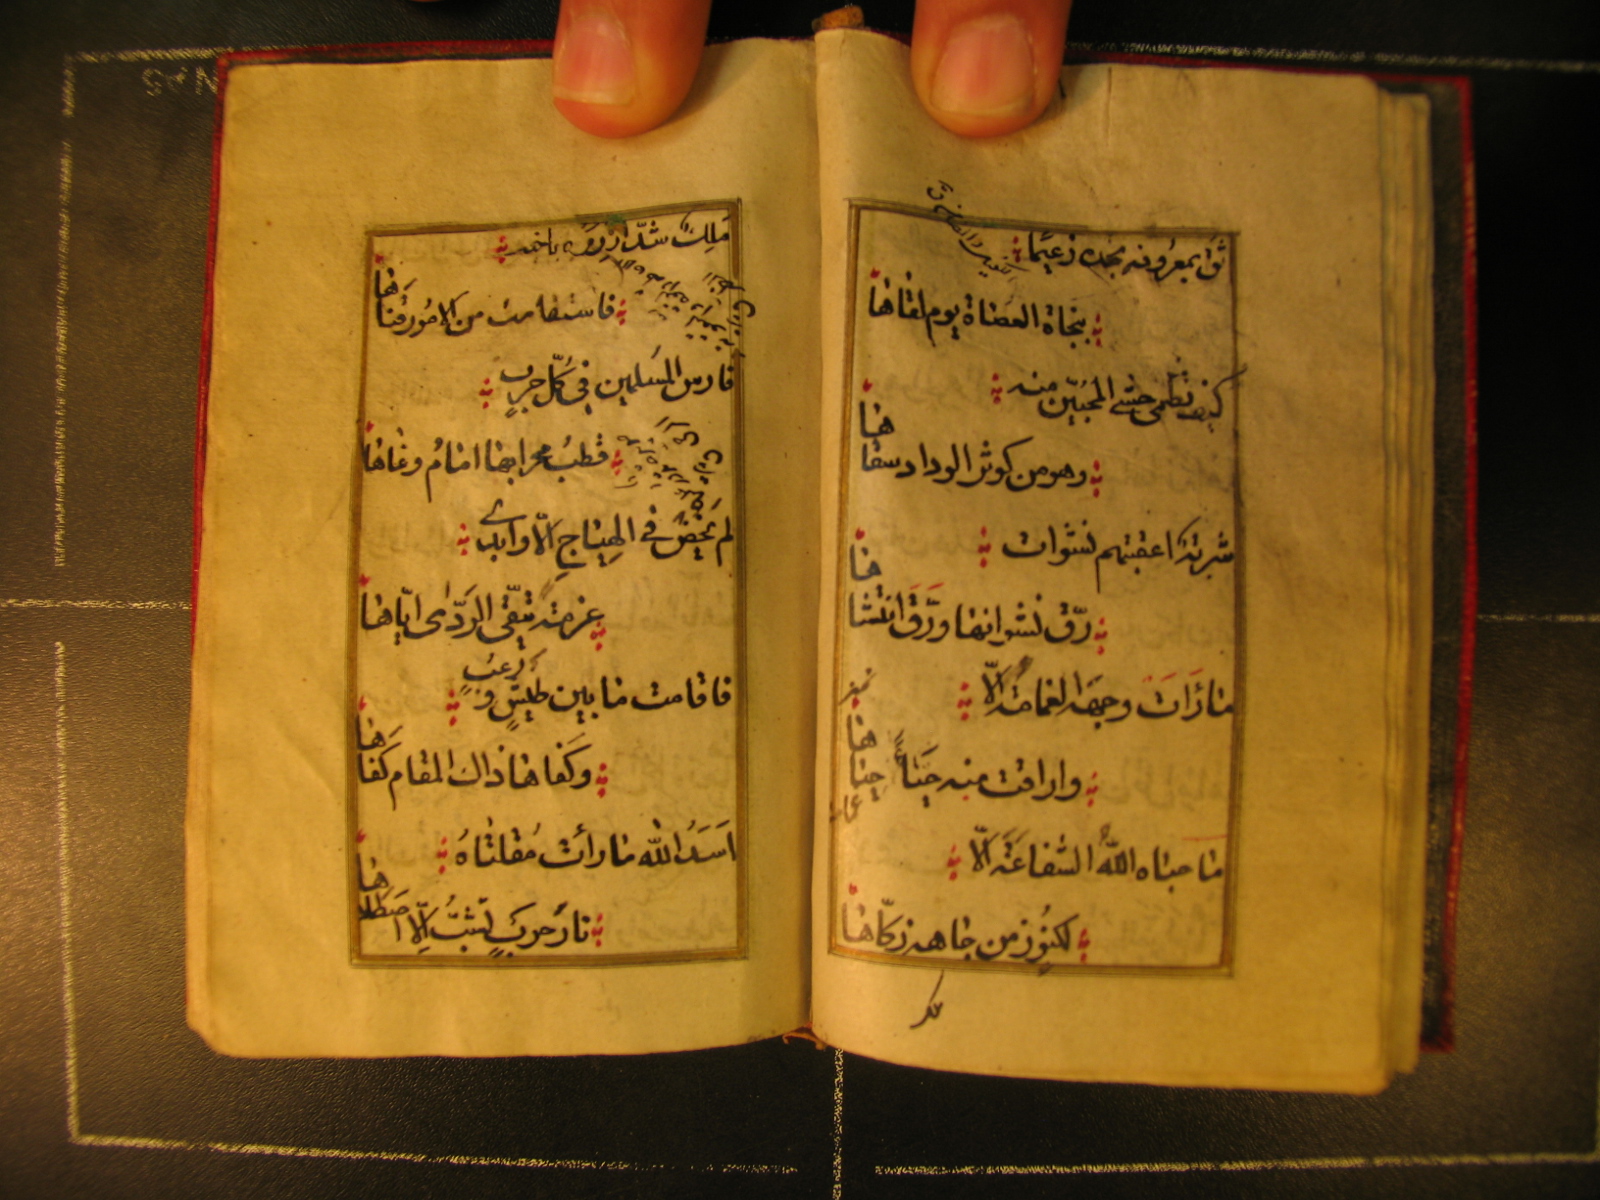 ثق بمعروفه تجده زعيما
بنجاة العصاة يوم لقاها
كيف تظمى حشى المحبين منه
وهو من كوثر الوداد سقاها
شربة اعقبتهم نشوات
رق نشوانها ورق انتشاها
ما رأت وجهه الغمامة الا
واراقت منه حياء حياها
ما حباه الله الشفاعة الا
لكنوز من جاهه زكاها
ملك شد ازره باخيه
فاستقامت من الامور قناها
فارس المسلمين في كل حرب
قطب محرابها امام وغاها
لم يخض في الهياج الا وابدى
عزمة يتقي الردى اياها
فاقامت ما بين طيش ورعب
وكفاها ذاك المقام كفاها
اسد الله ما رأت مقلتاه
نار حرب تشب الا اصطلاها